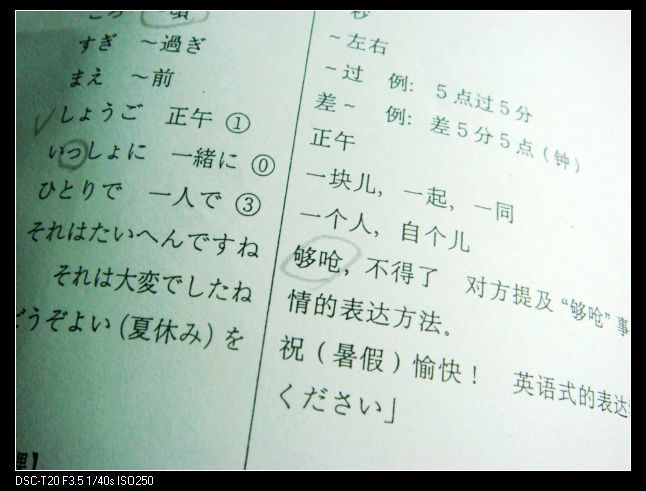 ～頃
秒
すぎ ～過ぎ
～左右
まえ ～前
～过 例: 5点过5分
しょうご 正午 ①
差～ 例: 差5分5点(钟)
正午
いっしょに 一緒に ⓪
一块儿, 一起, 一同
ひとりで 一人で ③
一个人, 自个儿
それはたいへんですね
够呛, 不得了 对方提及“够呛”事
それは大変でしたね
情的表达方法。
どうぞよい(夏休み)を
祝(暑假)愉快! 英语式的表达
ください」
DSC-T20 F3.5 1/40s ISO250